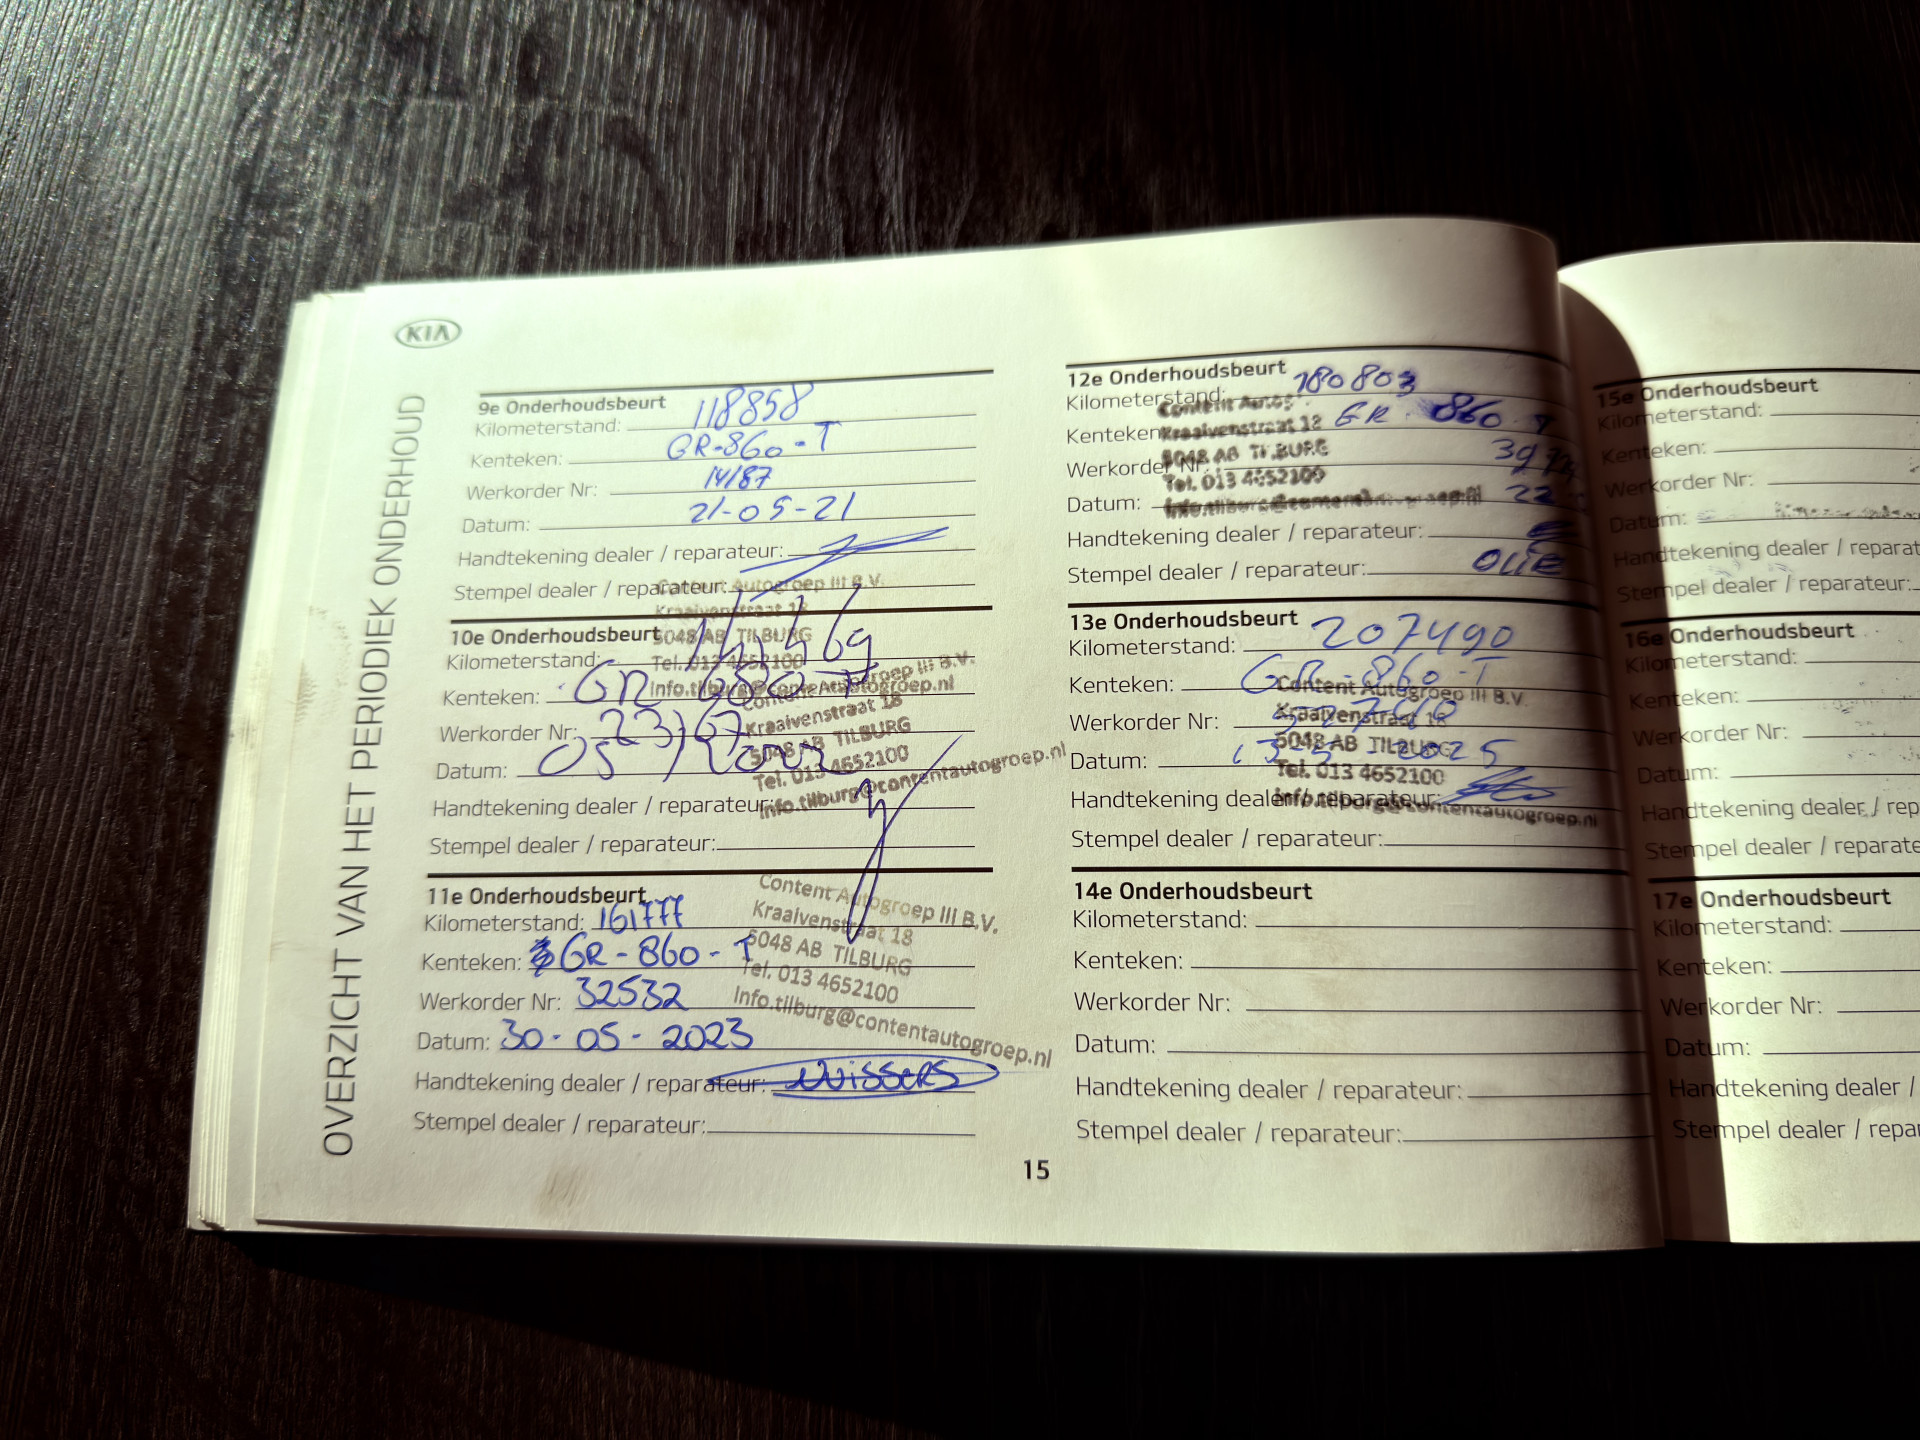 KIA
OVERZICHT VAN HET PERIODIEK ONDERHOUD
9e Onderhoudsbeurt
Kilometerstand: 118858
Kenteken: GR-860-T
Werkorder Nr: 14187
Datum: 21-05-21
Handtekening dealer / reparateur:
Stempel dealer / reparateur:
Content Autogroep III B.V.
Kraaivenstraat 18
5048 AB TILBURG
Tel. 013 4652100
Info.tilburg@contentautogroep.nl
10e Onderhoudsbeurt
Kilometerstand:
Kenteken: GR
Werkorder Nr: 23167
Datum:
Handtekening dealer / reparateur:
Stempel dealer / reparateur:
Kraaivenstraat 18
5048 AB TILBURG
Tel. 013 4652100
Info.tilburg@contentautogroep.nl
11e Onderhoudsbeurt
Kilometerstand: 161777
Kenteken: GR-860-T
Werkorder Nr: 32532
Datum: 30-05-2023
Handtekening dealer / reparateur:
Stempel dealer / reparateur:
Content Autogroep III B.V.
Kraaivenstraat 18
5048 AB TILBURG
Tel. 013 4652100
Info.tilburg@contentautogroep.nl
12e Onderhoudsbeurt
Kilometerstand: 180803
Kenteken: GR-860-T
Werkorder Nr:
Datum: 22
Handtekening dealer / reparateur:
Stempel dealer / reparateur: OLIE
Content Autog
Kraaivenstraat 18
5048 AB TILBURG
Tel. 013 4652100
13e Onderhoudsbeurt
Kilometerstand: 207490
Kenteken: GR-860-T
Werkorder Nr:
Datum: 2025
Handtekening dealer / reparateur:
Stempel dealer / reparateur:
Content Autogroep III B.V.
Kraaivenstraat 18
5048 AB TILBURG
Tel. 013 4652100
Info.tilburg@contentautogroep.nl
14e Onderhoudsbeurt
Kilometerstand:
Kenteken:
Werkorder Nr:
Datum:
Handtekening dealer / reparateur:
Stempel dealer / reparateur:
15
15e Onderhoudsbeurt
Kilometerstand:
Kenteken:
Werkorder Nr:
Datum:
Handtekening dealer / reparat
Stempel dealer / reparateur:
16e Onderhoudsbeurt
Kilometerstand:
Kenteken:
Werkorder Nr:
Datum:
Handtekening dealer / rep
Stempel dealer / reparate
17e Onderhoudsbeurt
Kilometerstand:
Kenteken:
Werkorder Nr:
Datum:
Handtekening dealer /
Stempel dealer / repa